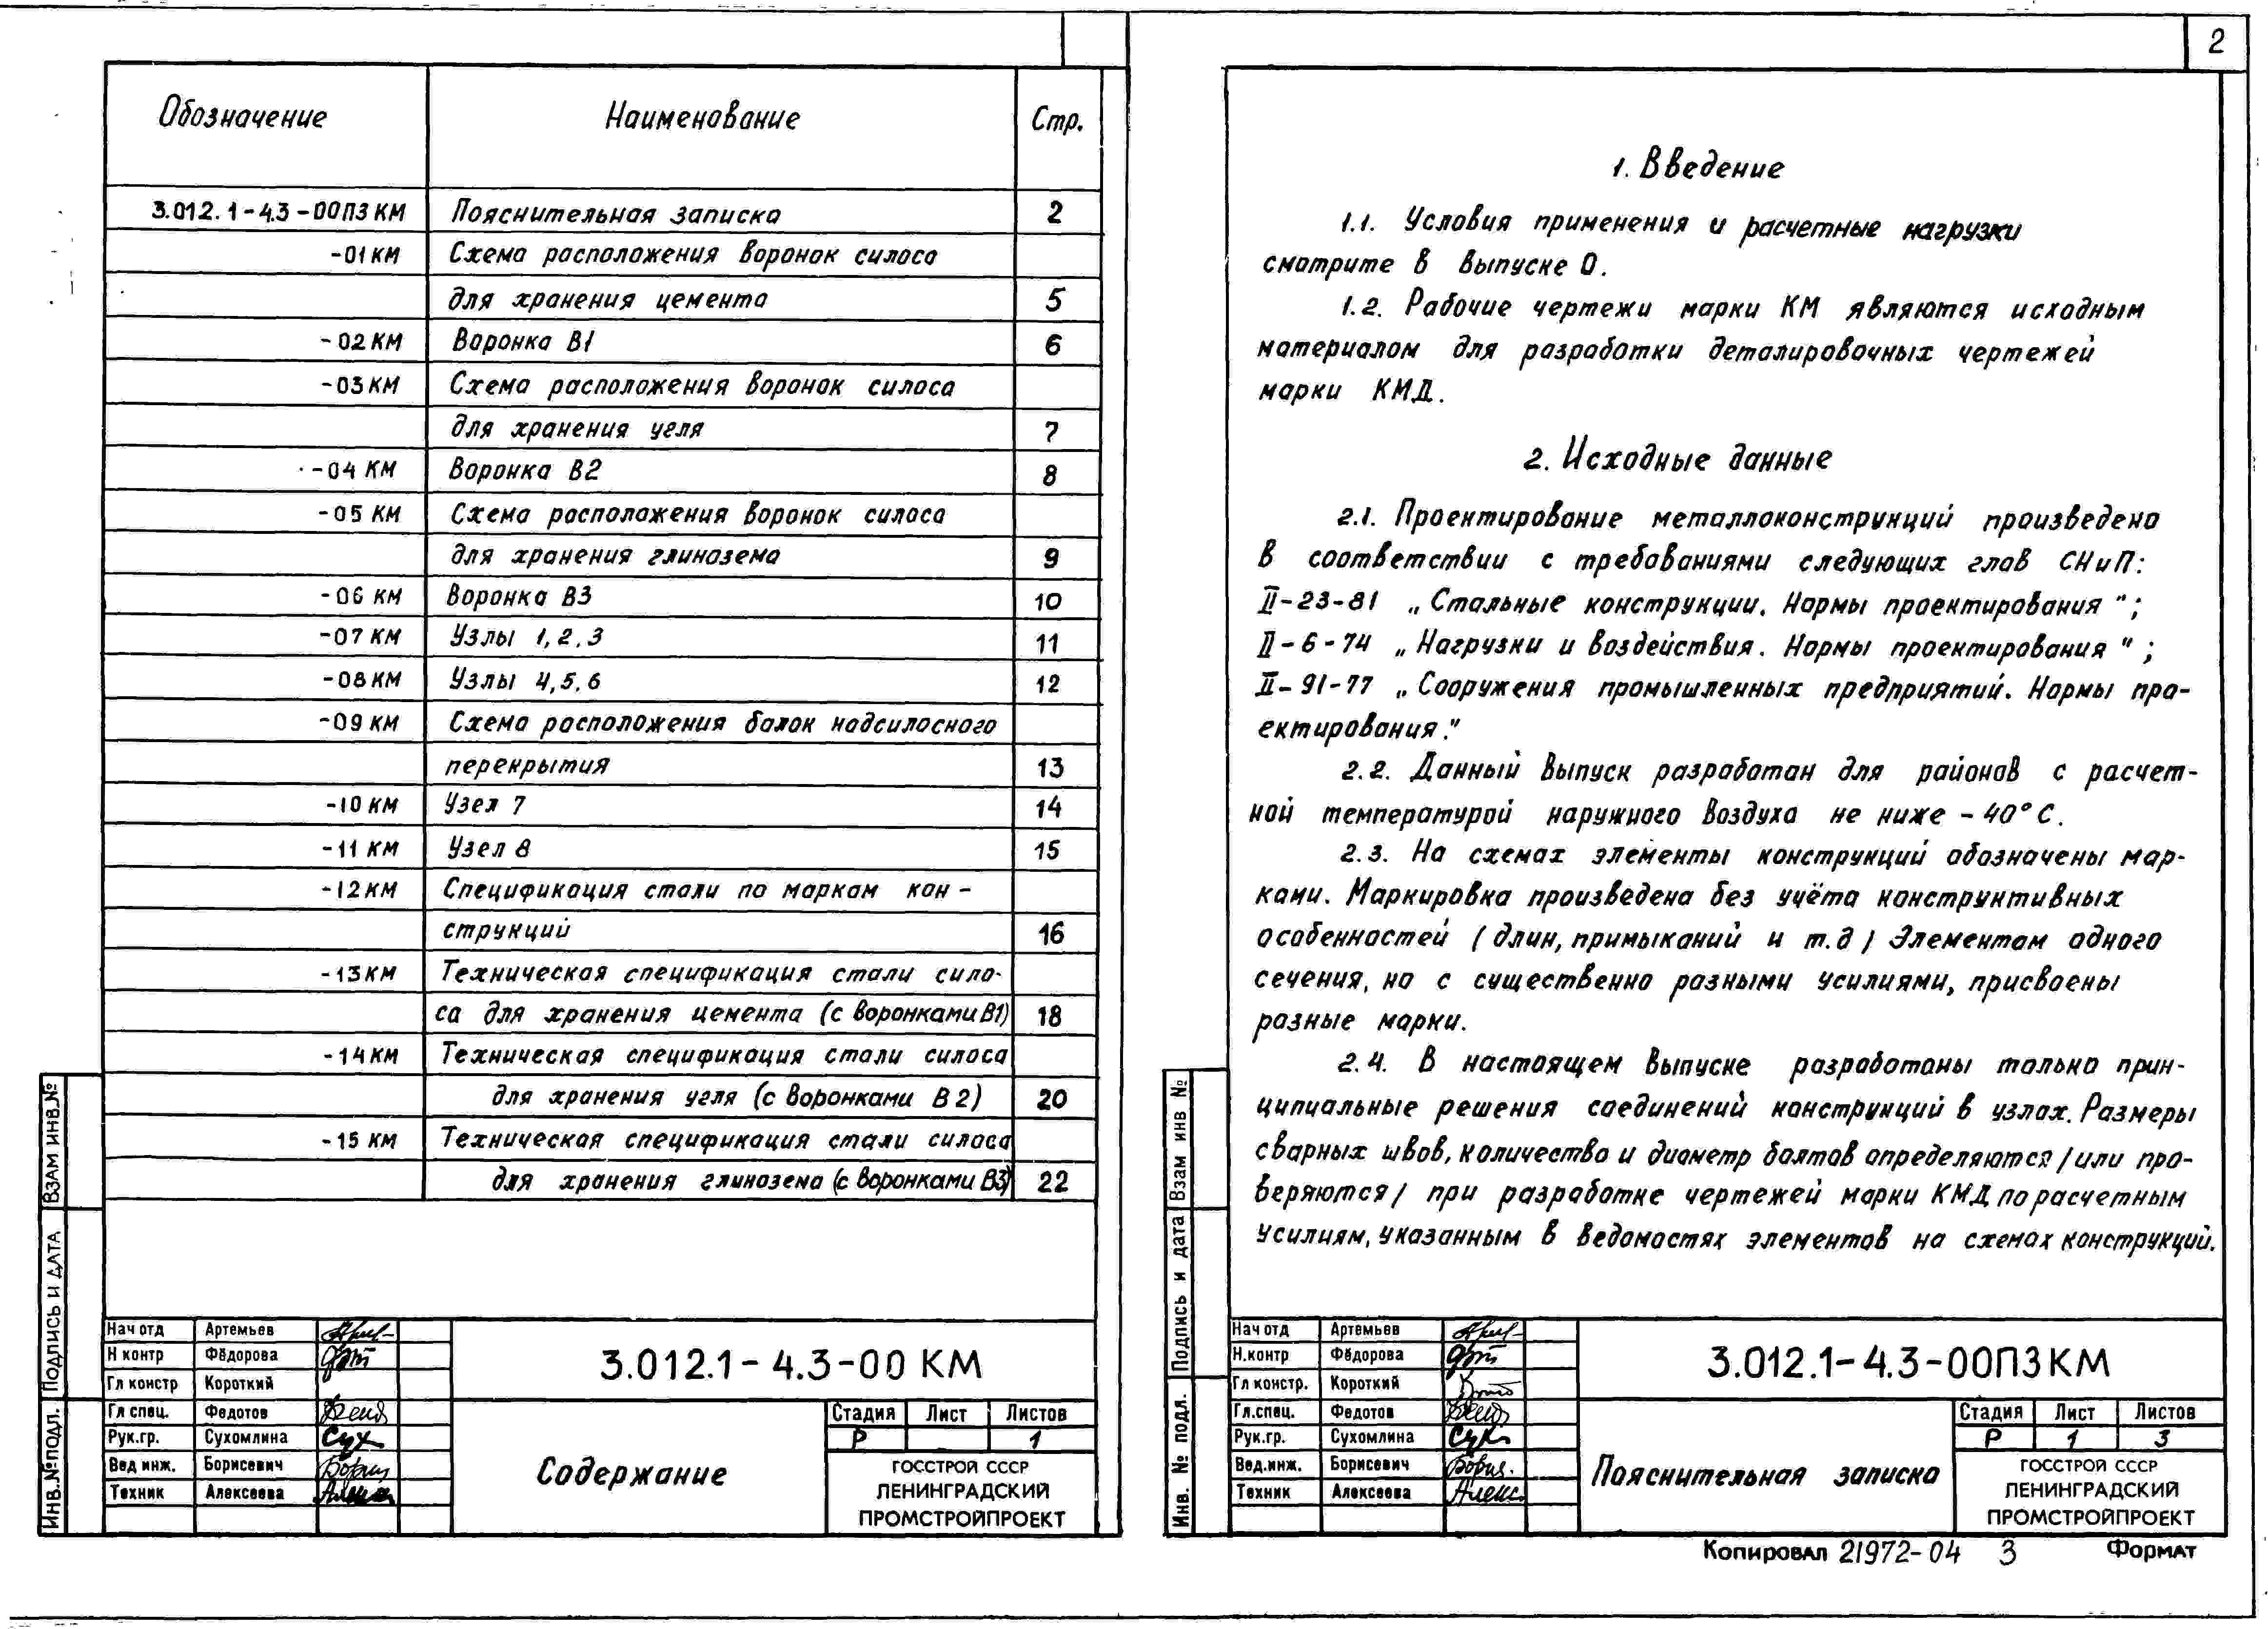 Обозначение Наименование Стр.
3.012.1-4.3-00ПЗ КМ Пояснительная записка 2
-01 КМ Схема расположения воронок силоса
для хранения цемента 5
-02 КМ Воронка В1 6
-03 КМ Схема расположения воронок силоса
для хранения угля 7
-04 КМ Воронка В2 8
-05 КМ Схема расположения воронок силоса
для хранения глинозема 9
-06 КМ Воронка В3 10
-07 КМ Узлы 1, 2, 3 11
-08 КМ Узлы 4, 5, 6 12
-09 КМ Схема расположения балок надсилосного
перекрытия 13
-10 КМ Узел 7 14
-11 КМ Узел 8 15
-12 КМ Спецификация стали по маркам кон-
струкций 16
-13 КМ Техническая спецификация стали сило-
са для хранения цемента (с воронками В1) 18
-14 КМ Техническая спецификация стали силоса
для хранения угля (с воронками В2) 20
-15 КМ Техническая спецификация стали силоса
для хранения глинозема (с воронками В3) 22
Взам инв.№
Подпись и дата
Инв.№подл.
Нач отд Артемьев
Н контр Фёдорова
Гл констр Короткий
Гл спец. Федотов
Рук.гр. Сухомлина
Вед инж. Борисевич
Техник Алексеева
3.012.1-4.3-00 КМ
Содержание
Стадия Лист Листов
Р 1
ГОССТРОЙ СССР
ЛЕНИНГРАДСКИЙ
ПРОМСТРОЙПРОЕКТ
2
1. Введение
1.1. Условия применения и расчетные нагрузки
смотрите в выпуске 0.
1.2. Рабочие чертежи марки КМ являются исходным
материалом для разработки деталировочных чертежей
марки КМД.
2. Исходные данные
2.1. Проектирование металлоконструкций произведено
в соответствии с требованиями следующих глав СНиП:
II-23-81 „Стальные конструкции. Нормы проектирования";
II-6-74 „Нагрузки и воздействия. Нормы проектирования";
II-91-77 „Сооружения промышленных предприятий. Нормы про-
ектирования."
2.2. Данный выпуск разработан для районов с расчет-
ной температурой наружного воздуха не ниже -40°С.
2.3. На схемах элементы конструкций обозначены мар-
ками. Маркировка произведена без учёта конструктивных
особенностей /длин, примыканий и т.д/ Элементам одного
сечения, но с существенно разными усилиями, присвоены
разные марки.
2.4. В настоящем выпуске разработаны только прин-
ципиальные решения соединений конструкций в узлах. Размеры
сварных швов, количество и диаметр болтов определяются /или про-
веряются/ при разработке чертежей марки КМД по расчетным
усилиям, указанным в ведомостях элементов на схемах конструкций.
Взам инв №
Подпись и дата
Инв. № подл.
Нач отд Артемьев
Н.контр Фёдорова
Гл констр. Короткий
Гл.спец. Федотов
Рук.гр. Сухомлина
Вед.инж. Борисевич
Техник Алексеева
3.012.1-4.3-00ПЗ КМ
Пояснительная записка
Стадия Лист Листов
Р 1 3
ГОССТРОЙ СССР
ЛЕНИНГРАДСКИЙ
ПРОМСТРОЙПРОЕКТ
Копировал 21972-04 3 Формат